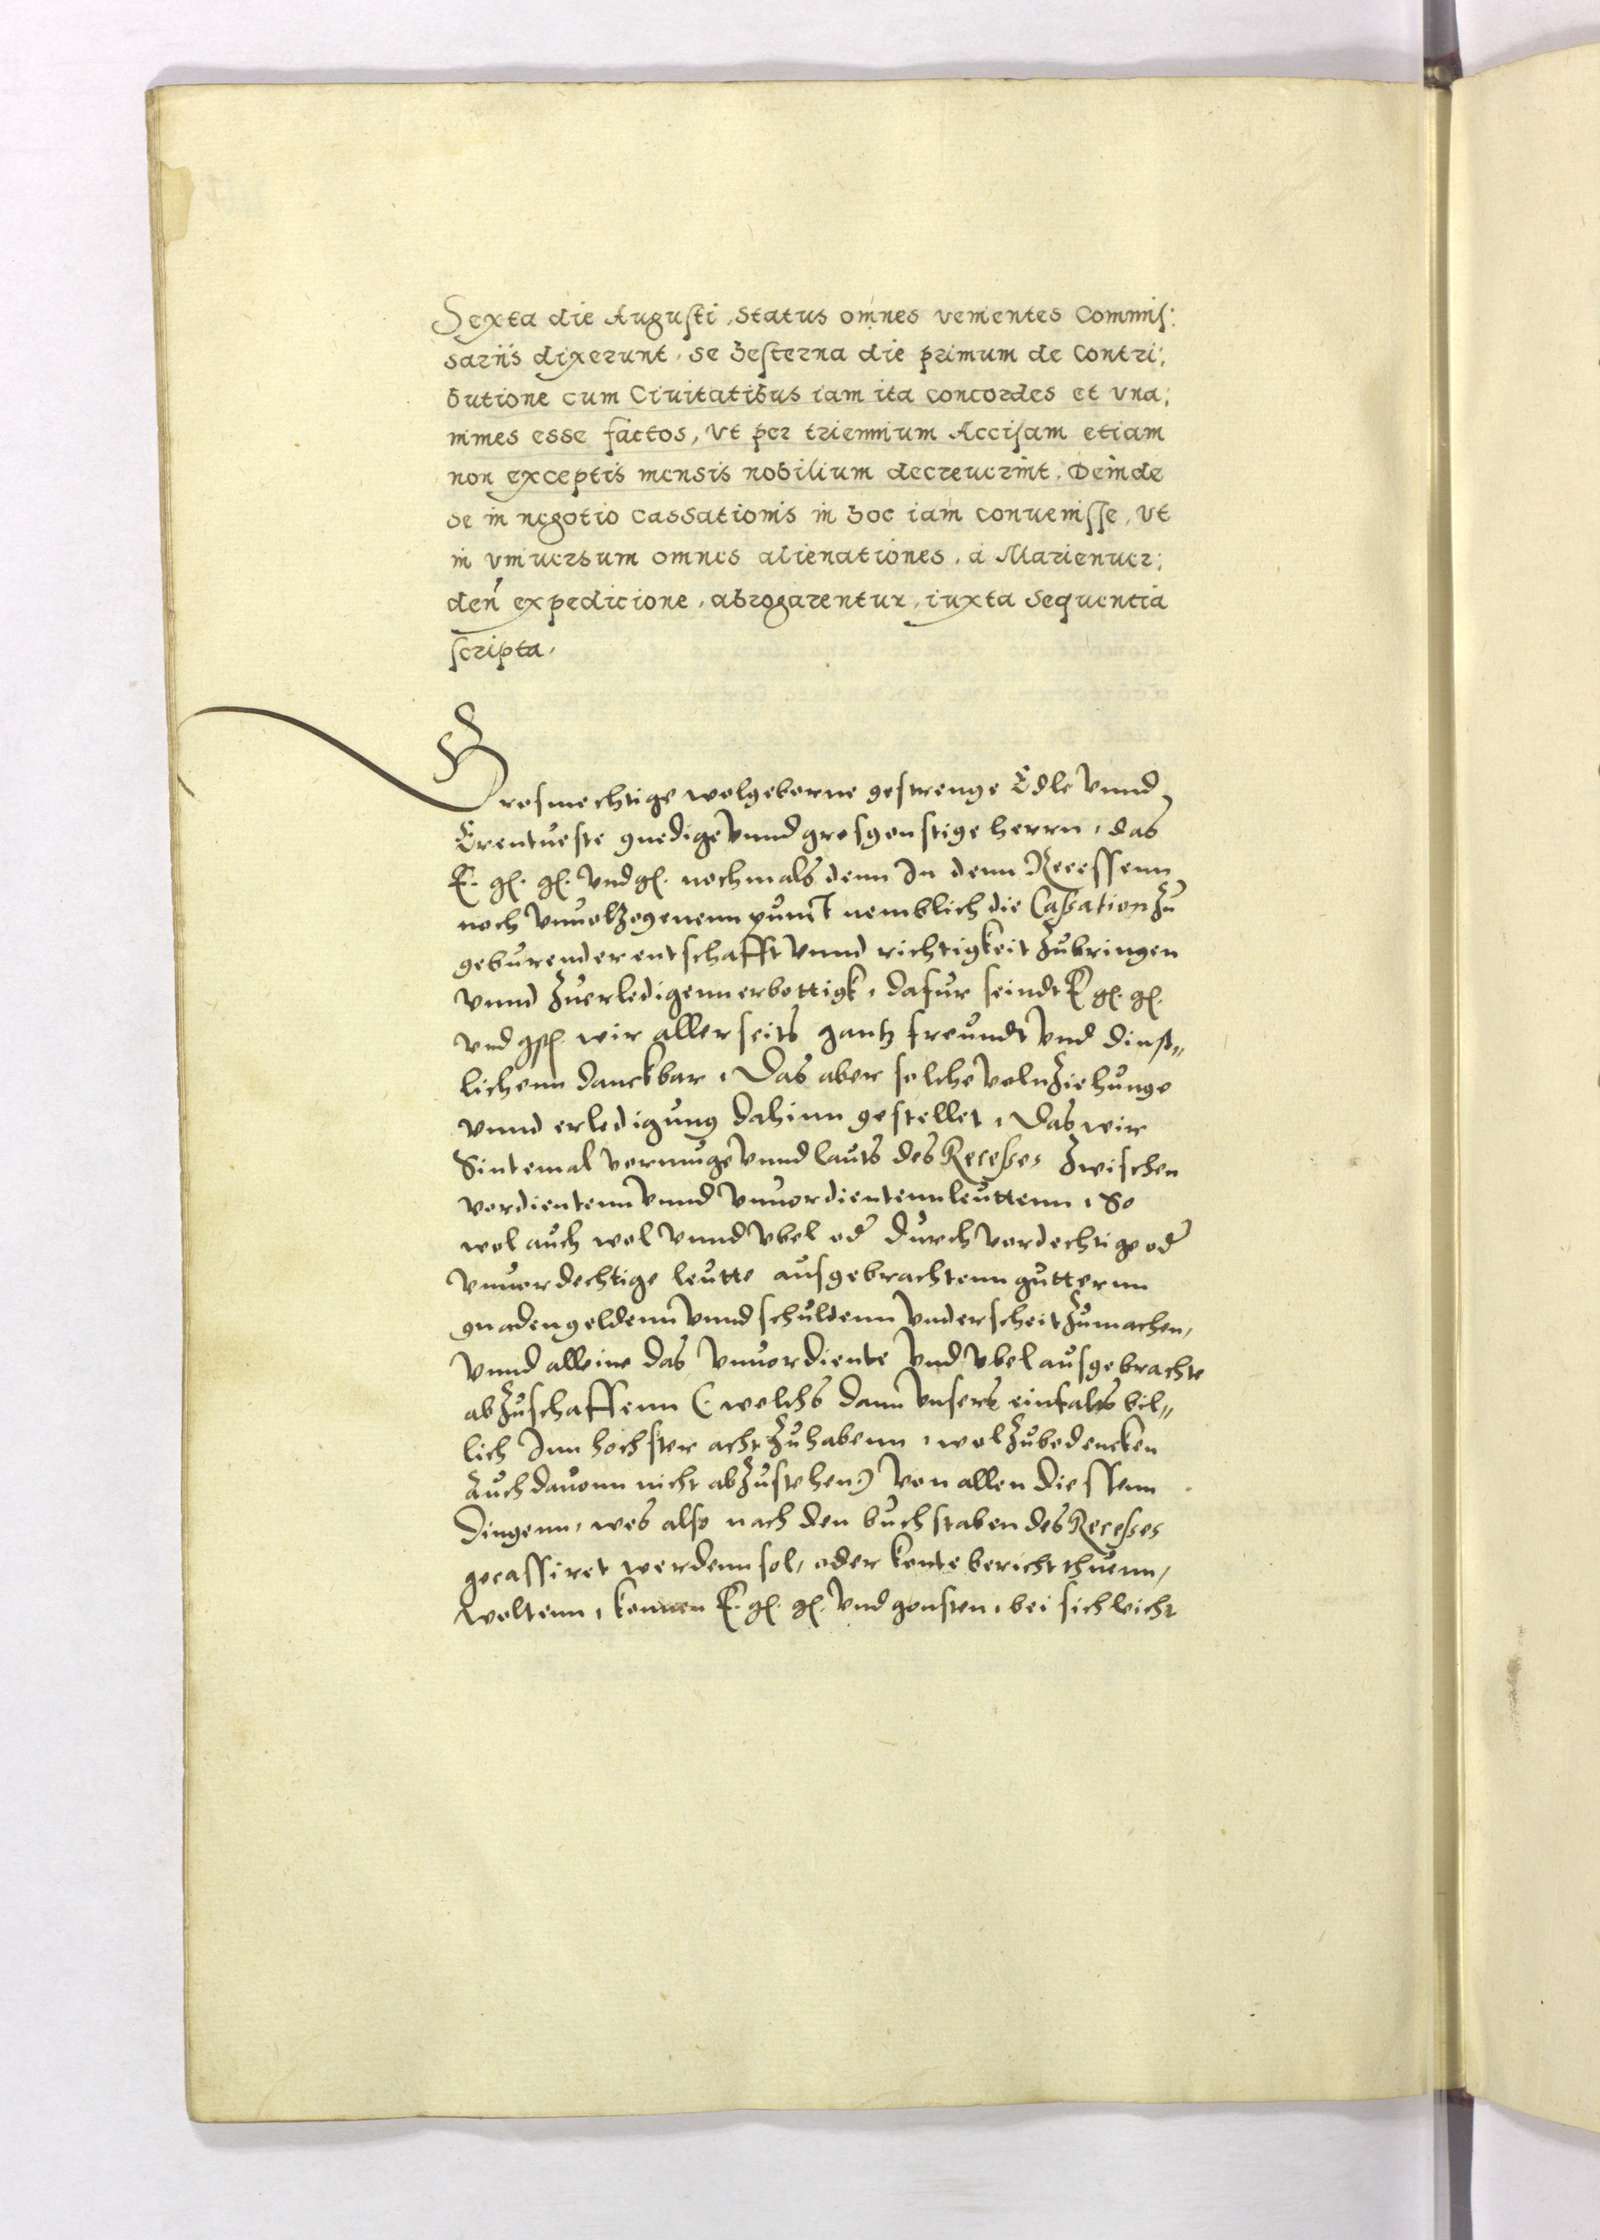 Sexta die Augusti, Status omnes venientes Commis:
sariis dixerunt, se hesterna die primum de Contri:
butione cum Ciuitatibus iam ita concordes et vna:
nimes esse factos, vt per triennium Accisam etiam
non exceptis mensis nobilium decreuerint, Deinde
se in negotio cassationis in hoc iam conuenisse, vt
in vniuersum omnes alienationes, a Marienuer:
den expedicione, abrogarentur, iuxta sequentia
scripta,
Grosmechtige wolgeborne gestrenge Edle vnnd
Erentueste gnedige vnnd grosgonstige herrn, das
E. gl. gl. vnd gl. nochmals denn In denn Recessenn
noch vnuolzogenenn punct nemblich die Caßation zu
geburender entschafft vnnd richtigkeit zubringen
vnnd zuerledigenn erbottigk, dafur seindt E gl. gl.
vnd gst. wir allerseits gantz freundt vnd dinst„
lichenn danckbar, Das aber solche volnziehunge
vnnd erledigung dahinn gestellet, Das wir
Sintemal vermuge vnnd lauts des Receßes zwischen
vordientenn vnnd vnuordientenn leuttenn, So
wol auch wol vnnd vbel od durch vordechtige od
vnuordechtige leutte ausgebrachtenn gutternn
gnadengeldenn vnnd schuldenn vnderscheit zumachen,
vnnd alleine das vnuordiente vnd vbel ausgebrachte
abzuschaffenn (: welchs dann vnsers einfalts bil„
lich Inn hochster acht zuhabenn, wol zubedencken
Auch dauonn nicht abzustehen) von allen diessenn
Dingenn, wes also nach den buchstaben des Receßes
gecassiret werdenn sol, oder konte bericht thuenn,
woltenn, konnen E. gl. gl. vnd gonsten, bei sich licht